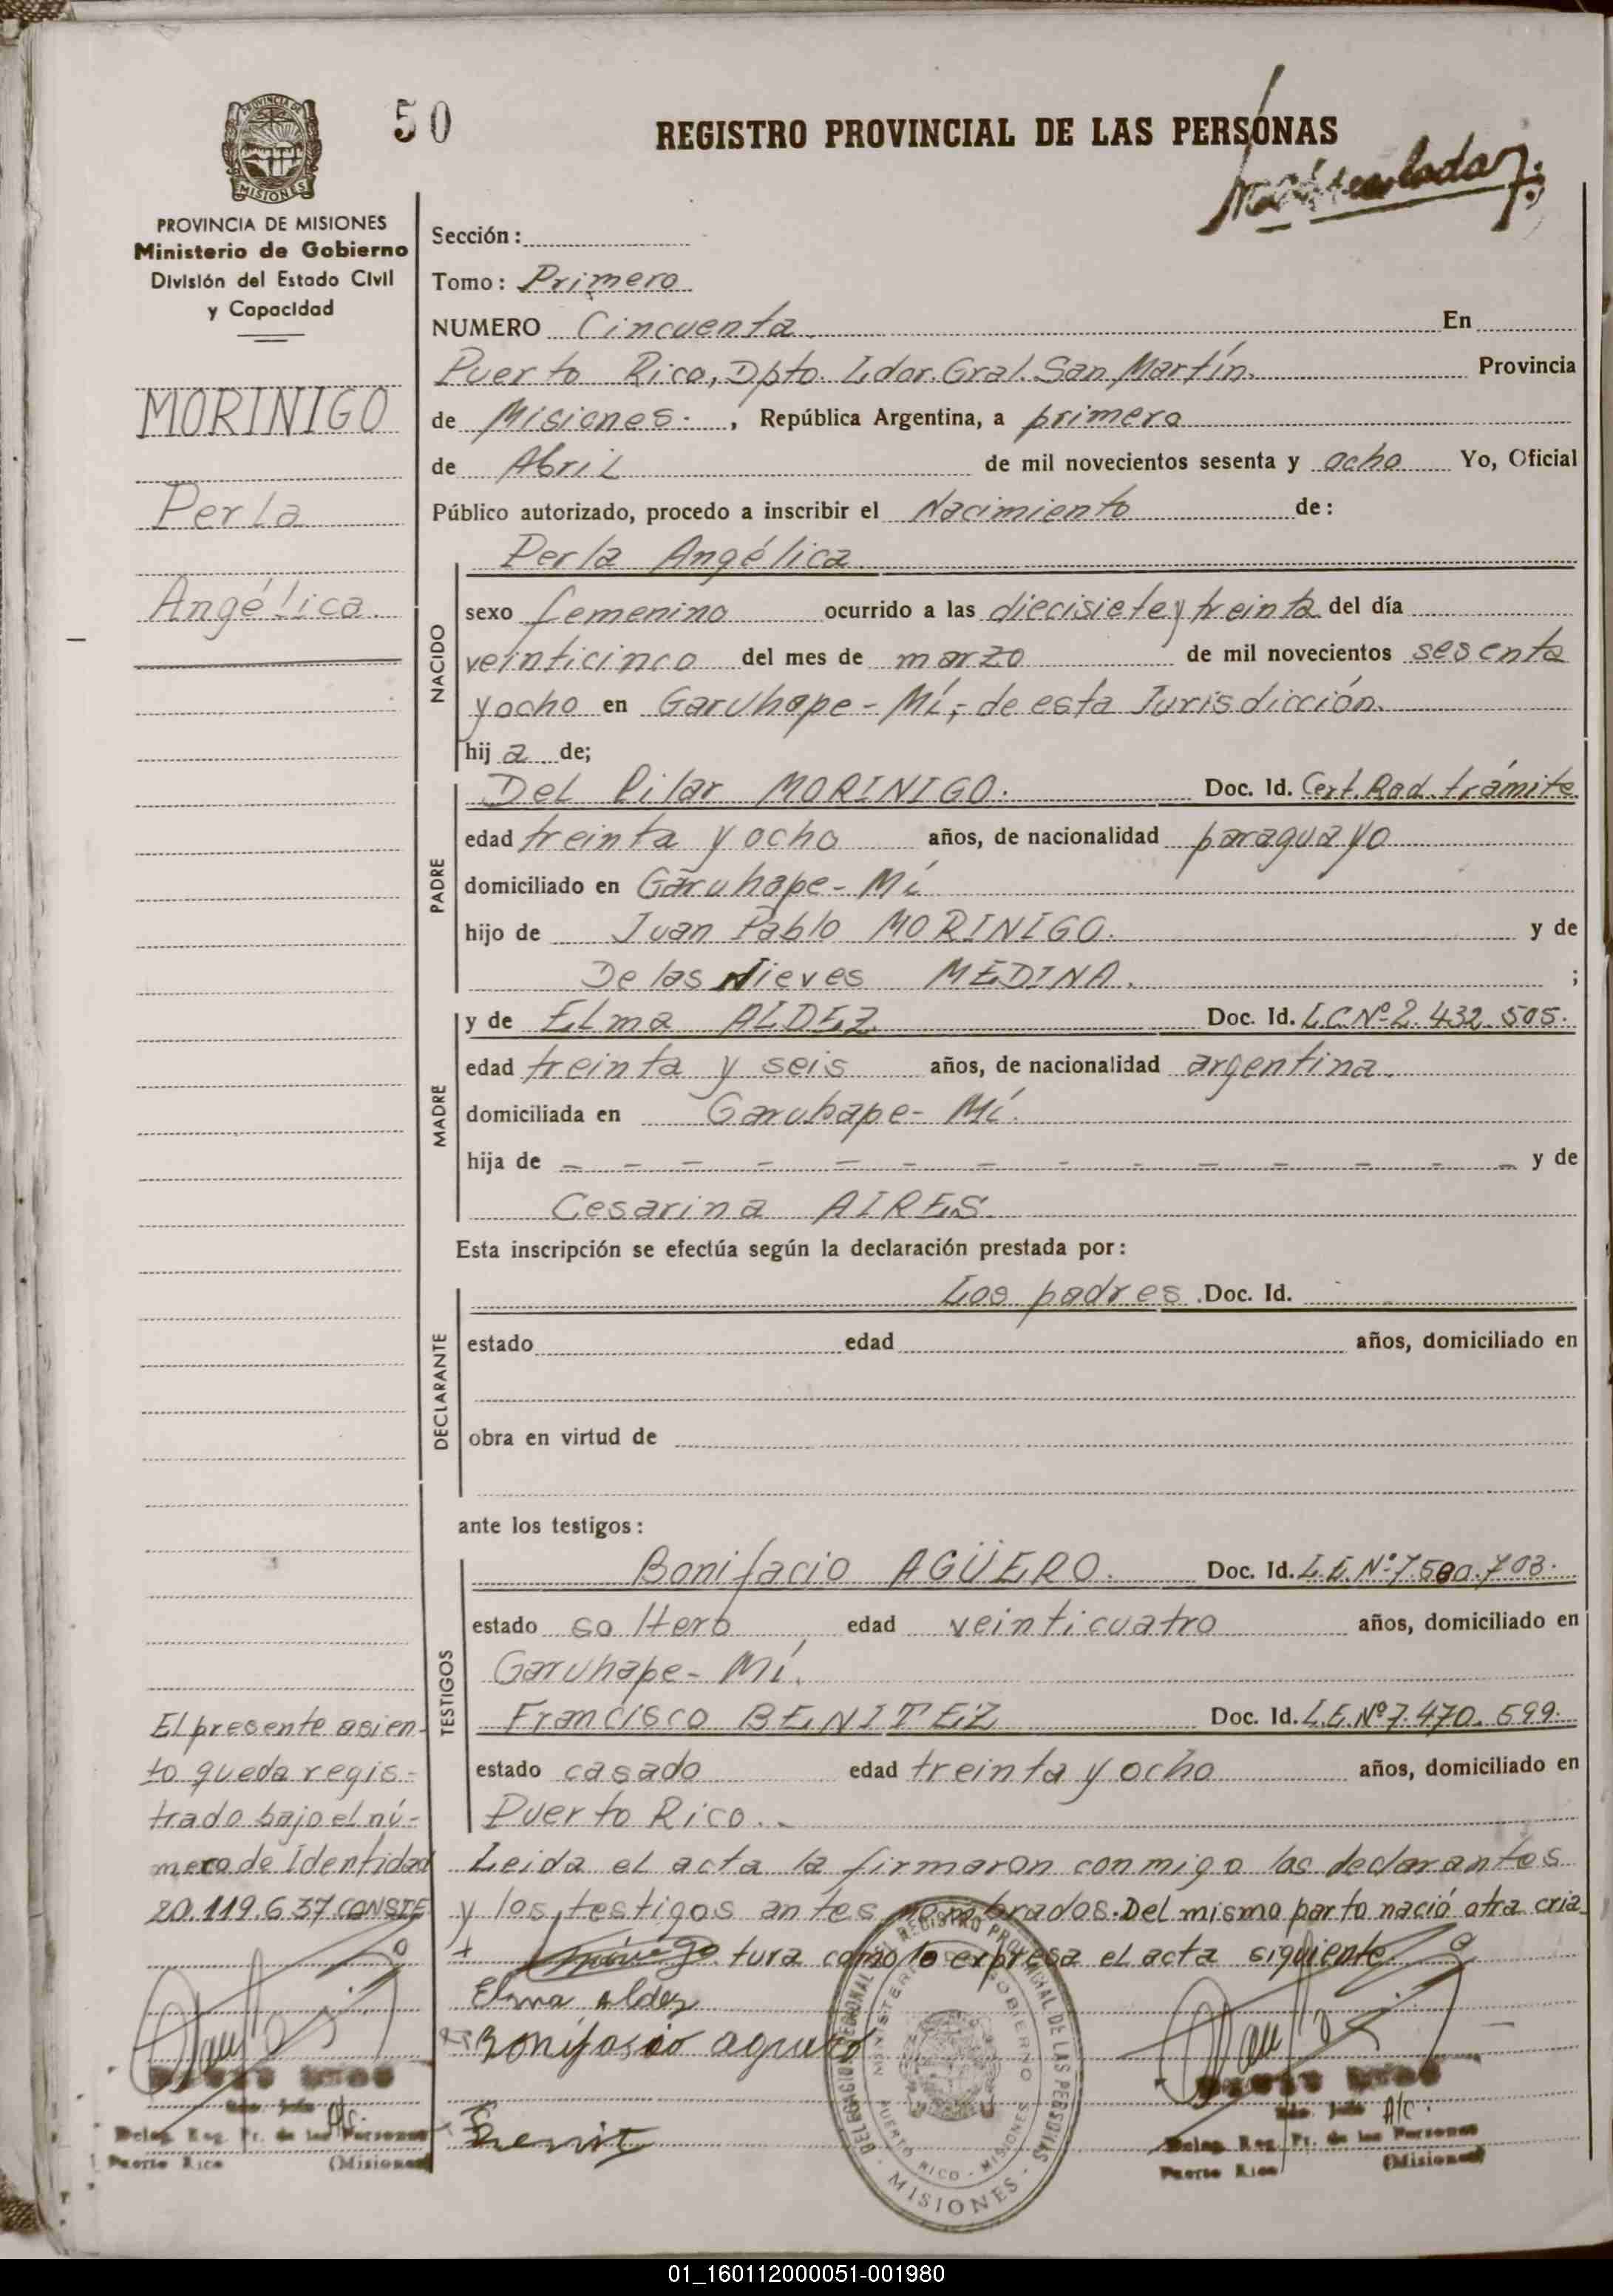 50
REGISTRO PROVINCIAL DE LAS PERSONAS
PROVINCIA DE
MISIONES
PROVINCIA DE MISIONES
Ministerio de Gobierno
División del Estado Civil
y Capacidad
MORINIGO
Perla
Angélica.
Sección:
Tomo: Primero
NUMERO Cincuenta. En
Puerto Rico, Dpto. Ldor. Gral. San Martín. Provincia
de Misiones. , República Argentina, a primero
de Abril de mil novecientos sesenta y ocho Yo, Oficial
Público autorizado, procedo a inscribir el Nacimiento de:
NACIDO
Perla Angélica
sexo femenino ocurrido a las diecisiete y treinta del día
veinticinco del mes de marzo de mil novecientos sesenta
y ocho en Garuhape-Mí,- de esta Jurisdicción.
hij a de;
PADRE
Del Pilar MORINIGO. Doc. Id. Cert. Rad. trámite.
edad treinta y ocho años, de nacionalidad paraguayo
domiciliado en Garuhape-Mí
hijo de Juan Pablo MORINIGO. y de
De las Nieves MEDINA. ;
MADRE
y de Elma ALDEZ Doc. Id. L.C.Nº 2.432.505.
edad treinta y seis años, de nacionalidad argentina.
domiciliada en Garuhape-Mí.
hija de - - - - - - - - - - - - - y de
Cesarina AIRES.
Esta inscripción se efectúa según la declaración prestada por:
DECLARANTE
Los padres. Doc. Id.
estado edad años, domiciliado en
obra en virtud de
ante los testigos:
TESTIGOS
Bonifacio AGÜERO. Doc. Id. L.E.Nº 7.580.703.
estado soltero edad veinticuatro años, domiciliado en
Garuhape-Mí.
Francisco BENITEZ Doc. Id. L.E.Nº 7.470.599.
estado casado edad treinta y ocho años, domiciliado en
Puerto Rico.
Leida el acta la firmaron conmigo los declarantes
y los testigos antes nombrados. Del mismo parto nació otra cria
tura como lo expresa el acta siguiente.
Elma aldez
Bonifasio aguero
El presente asien-
to queda regis-
trado bajo el nú-
mero de Identidad
20.119.637 CONSTE
A/C.
Deleg. Reg. Pr. de las Personas
Puerto Rico (Misiones)
DELEGACION REGIONAL DEL REGISTRO PROVINCIAL DE LAS PERSONAS
MINISTERIO DE GOBIERNO
PUERTO RICO - MISIONES
MISIONES
A/C.
Deleg. Reg. Pr. de las Personas
Puerto Rico (Misiones)
01_160112000051-001980